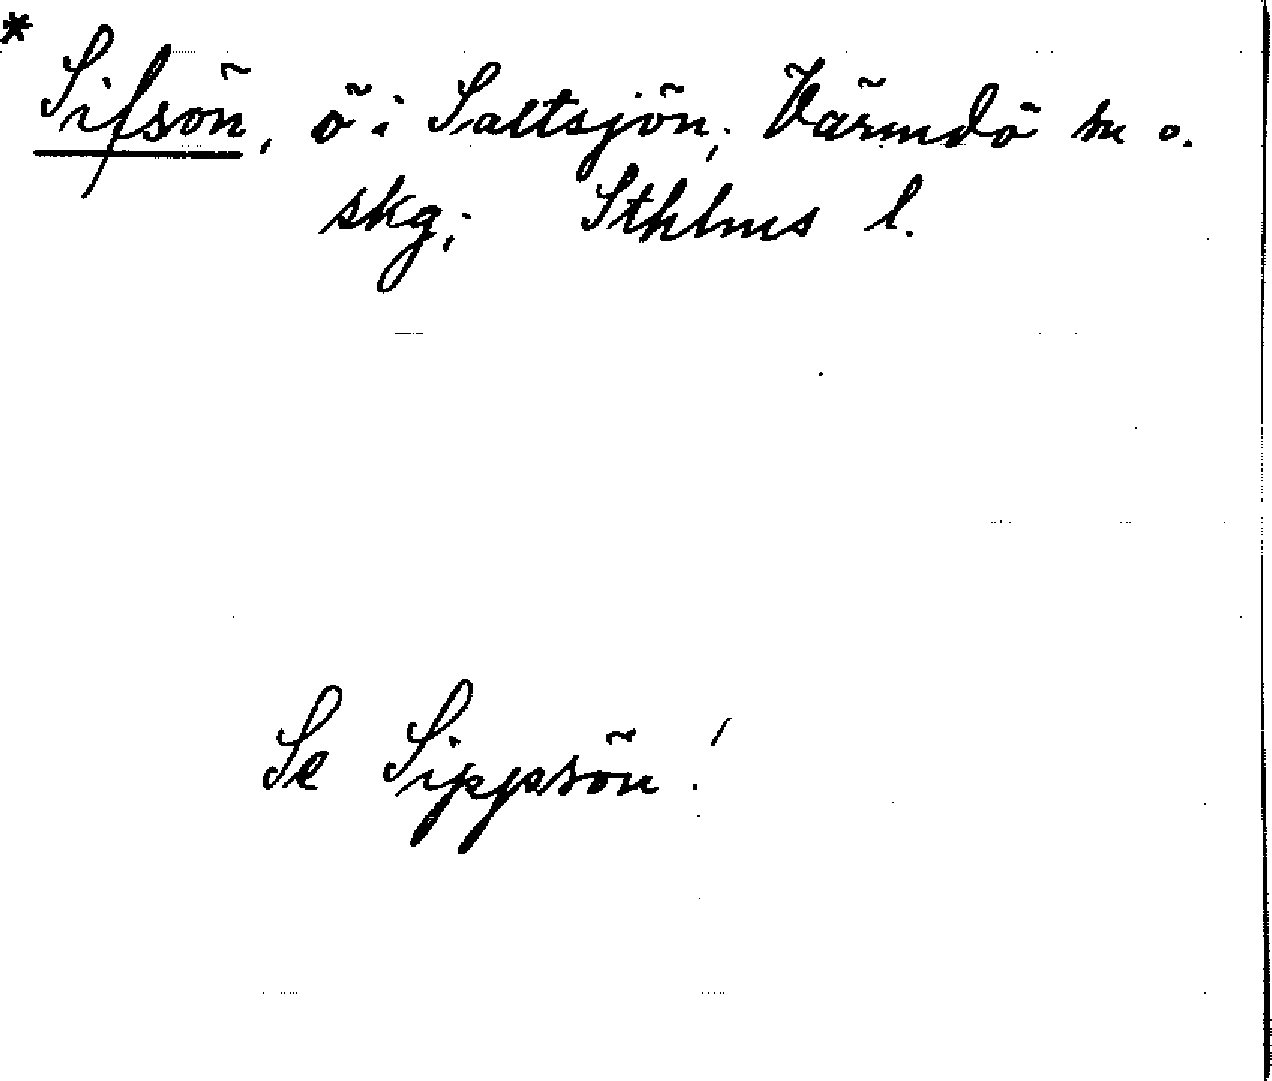 * Sifsön, ö i Saltsjön; Värmdö sn o.
skg; Sthlms l.
Se Sippsön!